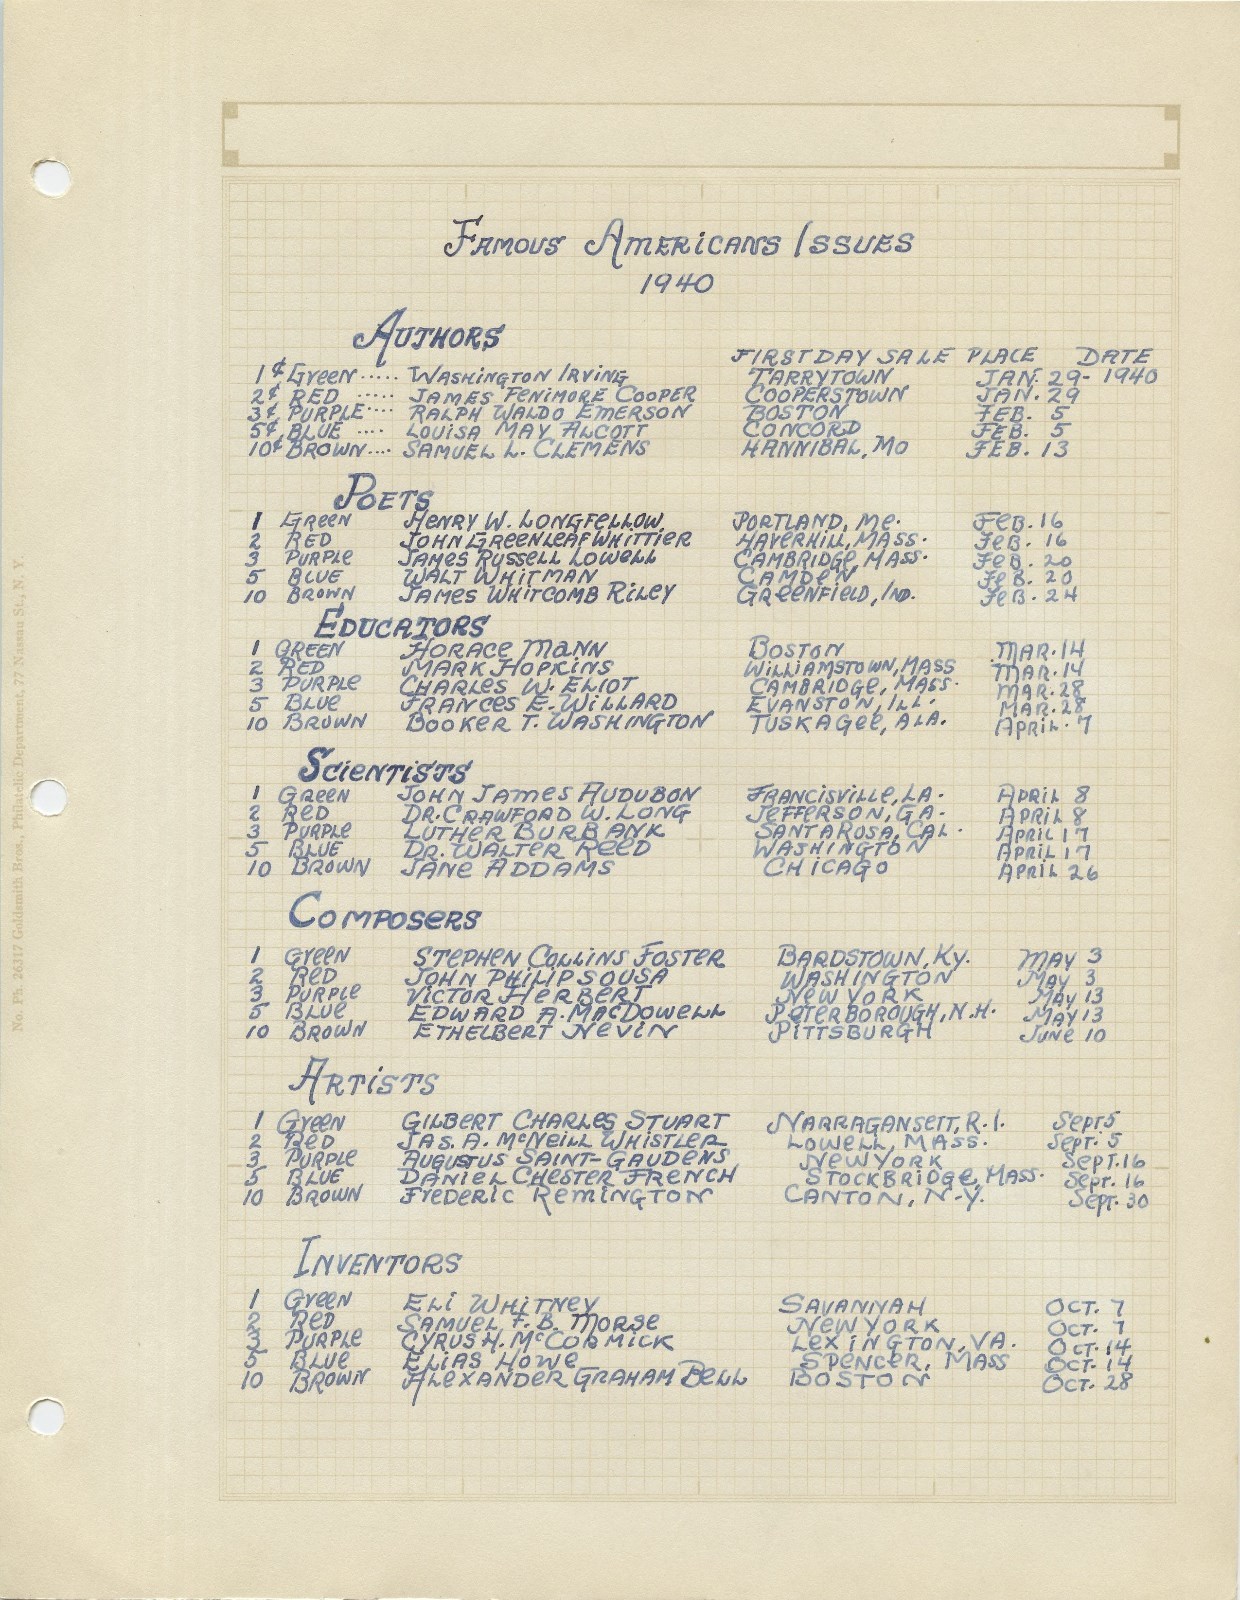 Famous Americans Issues
1940
Authors
First Day Sale Place Date
1¢ Green ..... Washington Irving Tarrytown Jan. 29 - 1940
2¢ Red ..... James Fenimore Cooper Cooperstown Jan. 29
3¢ Purple .... Ralph Waldo Emerson Boston Feb. 5
5¢ Blue .... Louisa May Alcott Concord Feb. 5
10¢ Brown .... Samuel L. Clemens Hannibal, Mo Feb. 13
Poets
1 Green Henry W. Longfellow Portland, Me. Feb. 16
2 Red John Greenleaf Whittier Haverhill, Mass. Feb. 16
3 Purple James Russell Lowell Cambridge, Mass. Feb. 20
5 Blue Walt Whitman Camden Feb. 20
10 Brown James Whitcomb Riley Greenfield, Ind. Feb. 24
Educators
1 Green Horace Mann Boston Mar. 14
2 Red Mark Hopkins Williamstown, Mass Mar. 14
3 Purple Charles W. Eliot Cambridge, Mass. Mar. 28
5 Blue Frances E. Willard Evanston, Ill. Mar. 28
10 Brown Booker T. Washington Tuskagee, Ala. April. 7
Scientists
1 Green John James Audubon Francisville, La. April 8
2 Red Dr. Crawford W. Long Jefferson, Ga. April 8
3 Purple Luther Burbank Santa Rosa, Cal. April 17
5 Blue Dr. Walter Reed Washington April 17
10 Brown Jane Addams Chicago April 26
Composers
1 Green Stephen Collins Foster Bardstown, Ky. May 3
2 Red John Philip Sousa Washington May 3
3 Purple Victor Herbert New York May 13
5 Blue Edward A. MacDowell Peterborough, N.H. May 13
10 Brown Ethelbert Nevin Pittsburgh June 10
Artists
1 Green Gilbert Charles Stuart Narragansett, R.I. Sept 5
2 Red Jas. A. McNeill Whistler Lowell, Mass. Sept. 5
3 Purple Augustus Saint-Gaudens New York Sept. 16
5 Blue Daniel Chester French Stockbridge, Mass. Sept. 16
10 Brown Frederic Remington Canton, N-Y. Sept. 30
Inventors
1 Green Eli Whitney Savannah Oct. 7
2 Red Samuel F. B. Morse New York Oct. 7
3 Purple Cyrus H. McCormick Lexington, Va. Oct. 14
5 Blue Elias Howe Spencer, Mass Oct. 14
10 Brown Alexander Graham Bell Boston Oct. 28
No. Ph. 26317 Goldsmith Bros., Philatelic Department, 77 Nassau St., N. Y.